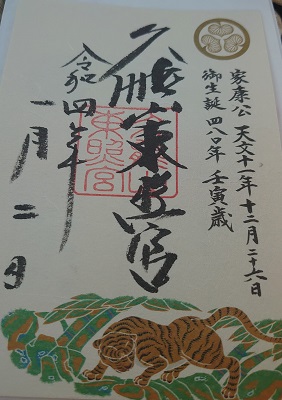 家康公 天文十一年 十二月二十六日
御生誕 四八〇年 壬寅歳
久能山東照宮
令和四年
一月二日